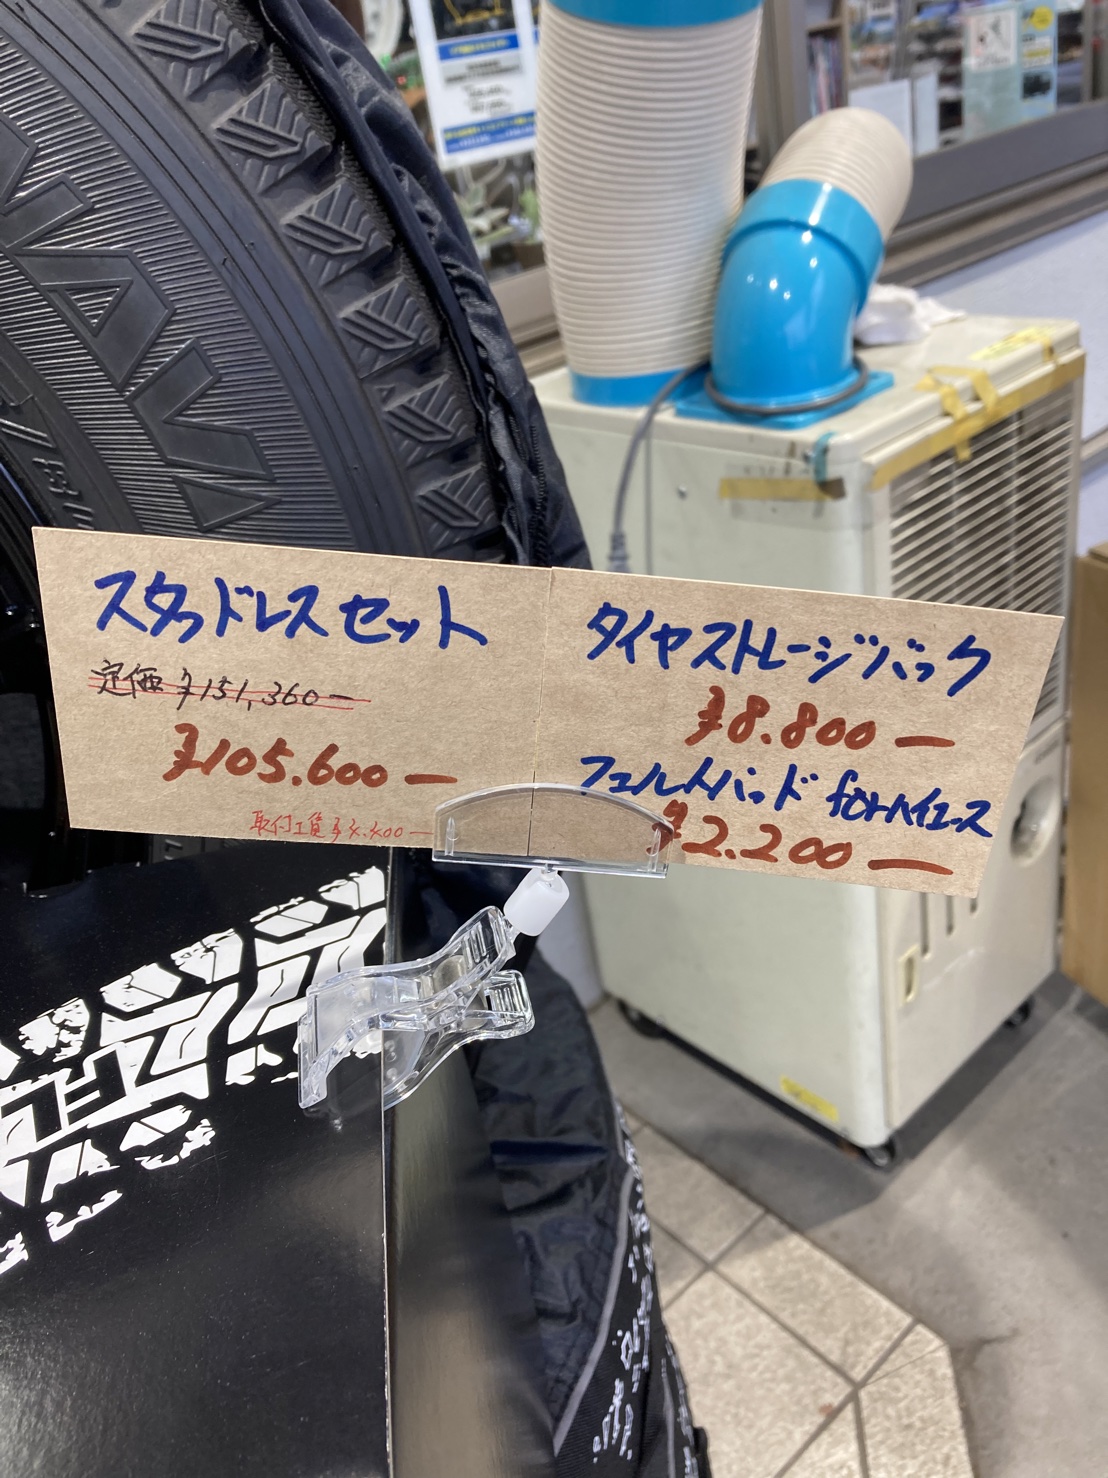 スタッドレスセット
定価 ¥151,360ー
¥105.600ー
取付工賃 ¥4.400ー
タイヤストレージバック
¥8.800ー
フェルトパッド forハイエース
¥2.200ー